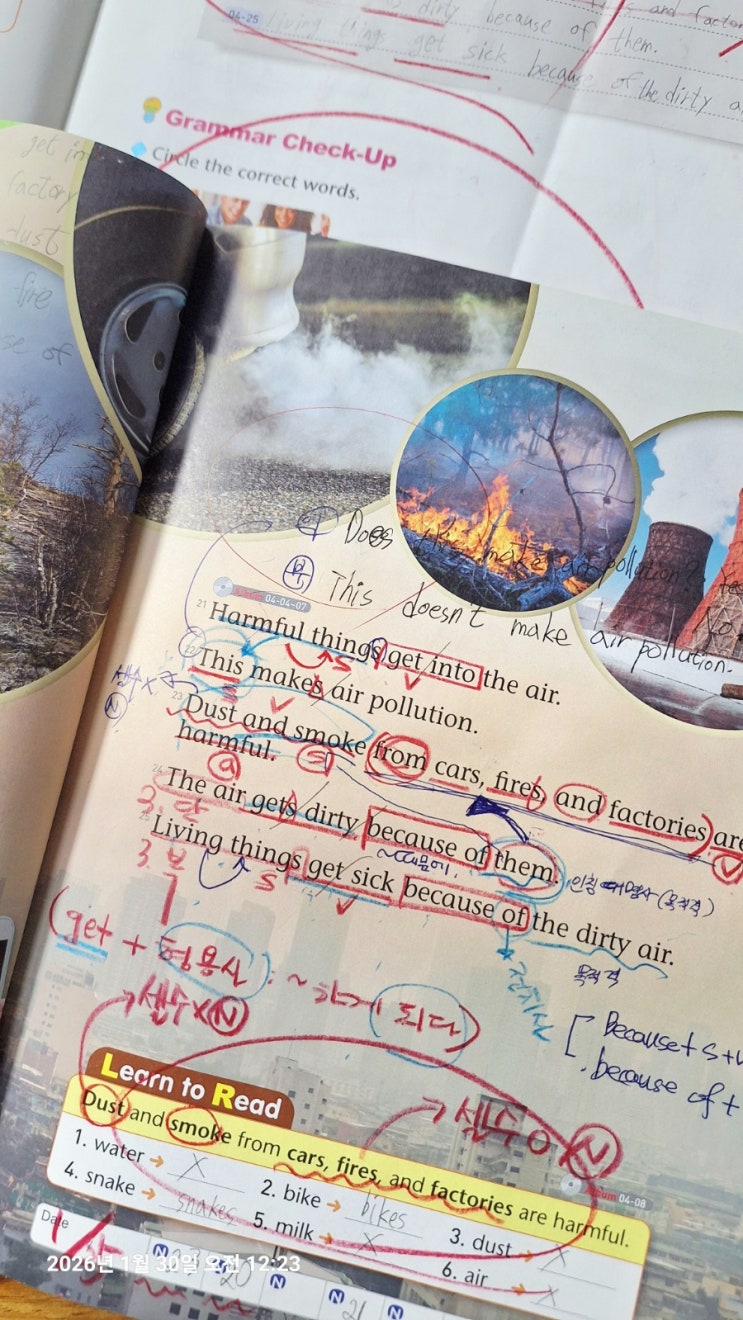 is dirty because of them.
and factor
04-25
Living things get sick because of the dirty a
Grammar Check-Up
Circle the correct words.
get in
factory
dust
fire
se of
의 Does this make air pollution? Yes
No
부 This doesn't make air pollution.
04-04-07
21 Harmful things get into the air.
22 This makes air pollution.
셀수 X
N
23 Dust and smoke from cars, fires, and factories are
harmful.
24 The air gets dirty because of them.
~때문에,
인칭대명사(목적격)
3. 단
25 Living things get sick because of the dirty air.
3. 복
목적격
전치사
(get + 형용사 : ~하게 되다)
셀수X N
[ Because + s + v
. because of +
Learn to Read
셀수 O N
Dust and smoke from cars, fires, and factories are harmful.
04-08
1. water → X
2. bike → bikes
3. dust → X
4. snake → snakes
5. milk → X
6. air → X
Date
N
20
N
N
21
N
2026년 1월 30일 오전 12:23